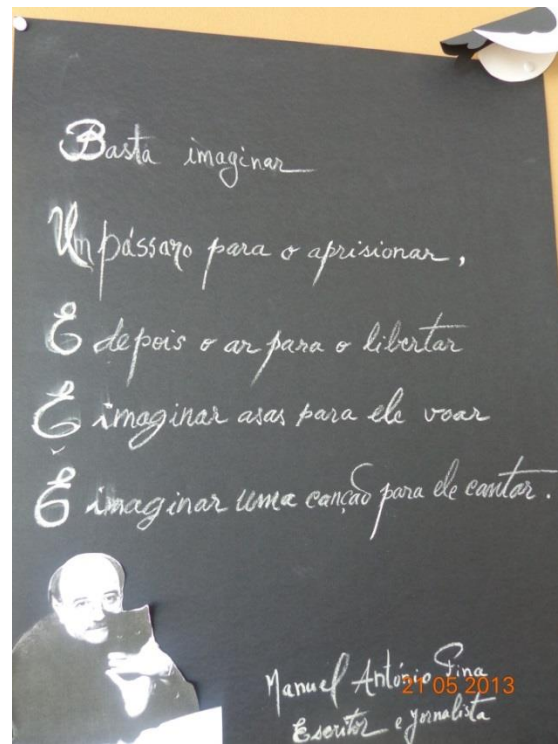 Basta imaginar
Um pássaro para o aprisionar,
E depois o ar para o libertar
E imaginar asas para ele voar
E imaginar uma canção para ele cantar.
Manuel António Pina
21 05 2013
Escritor e jornalista